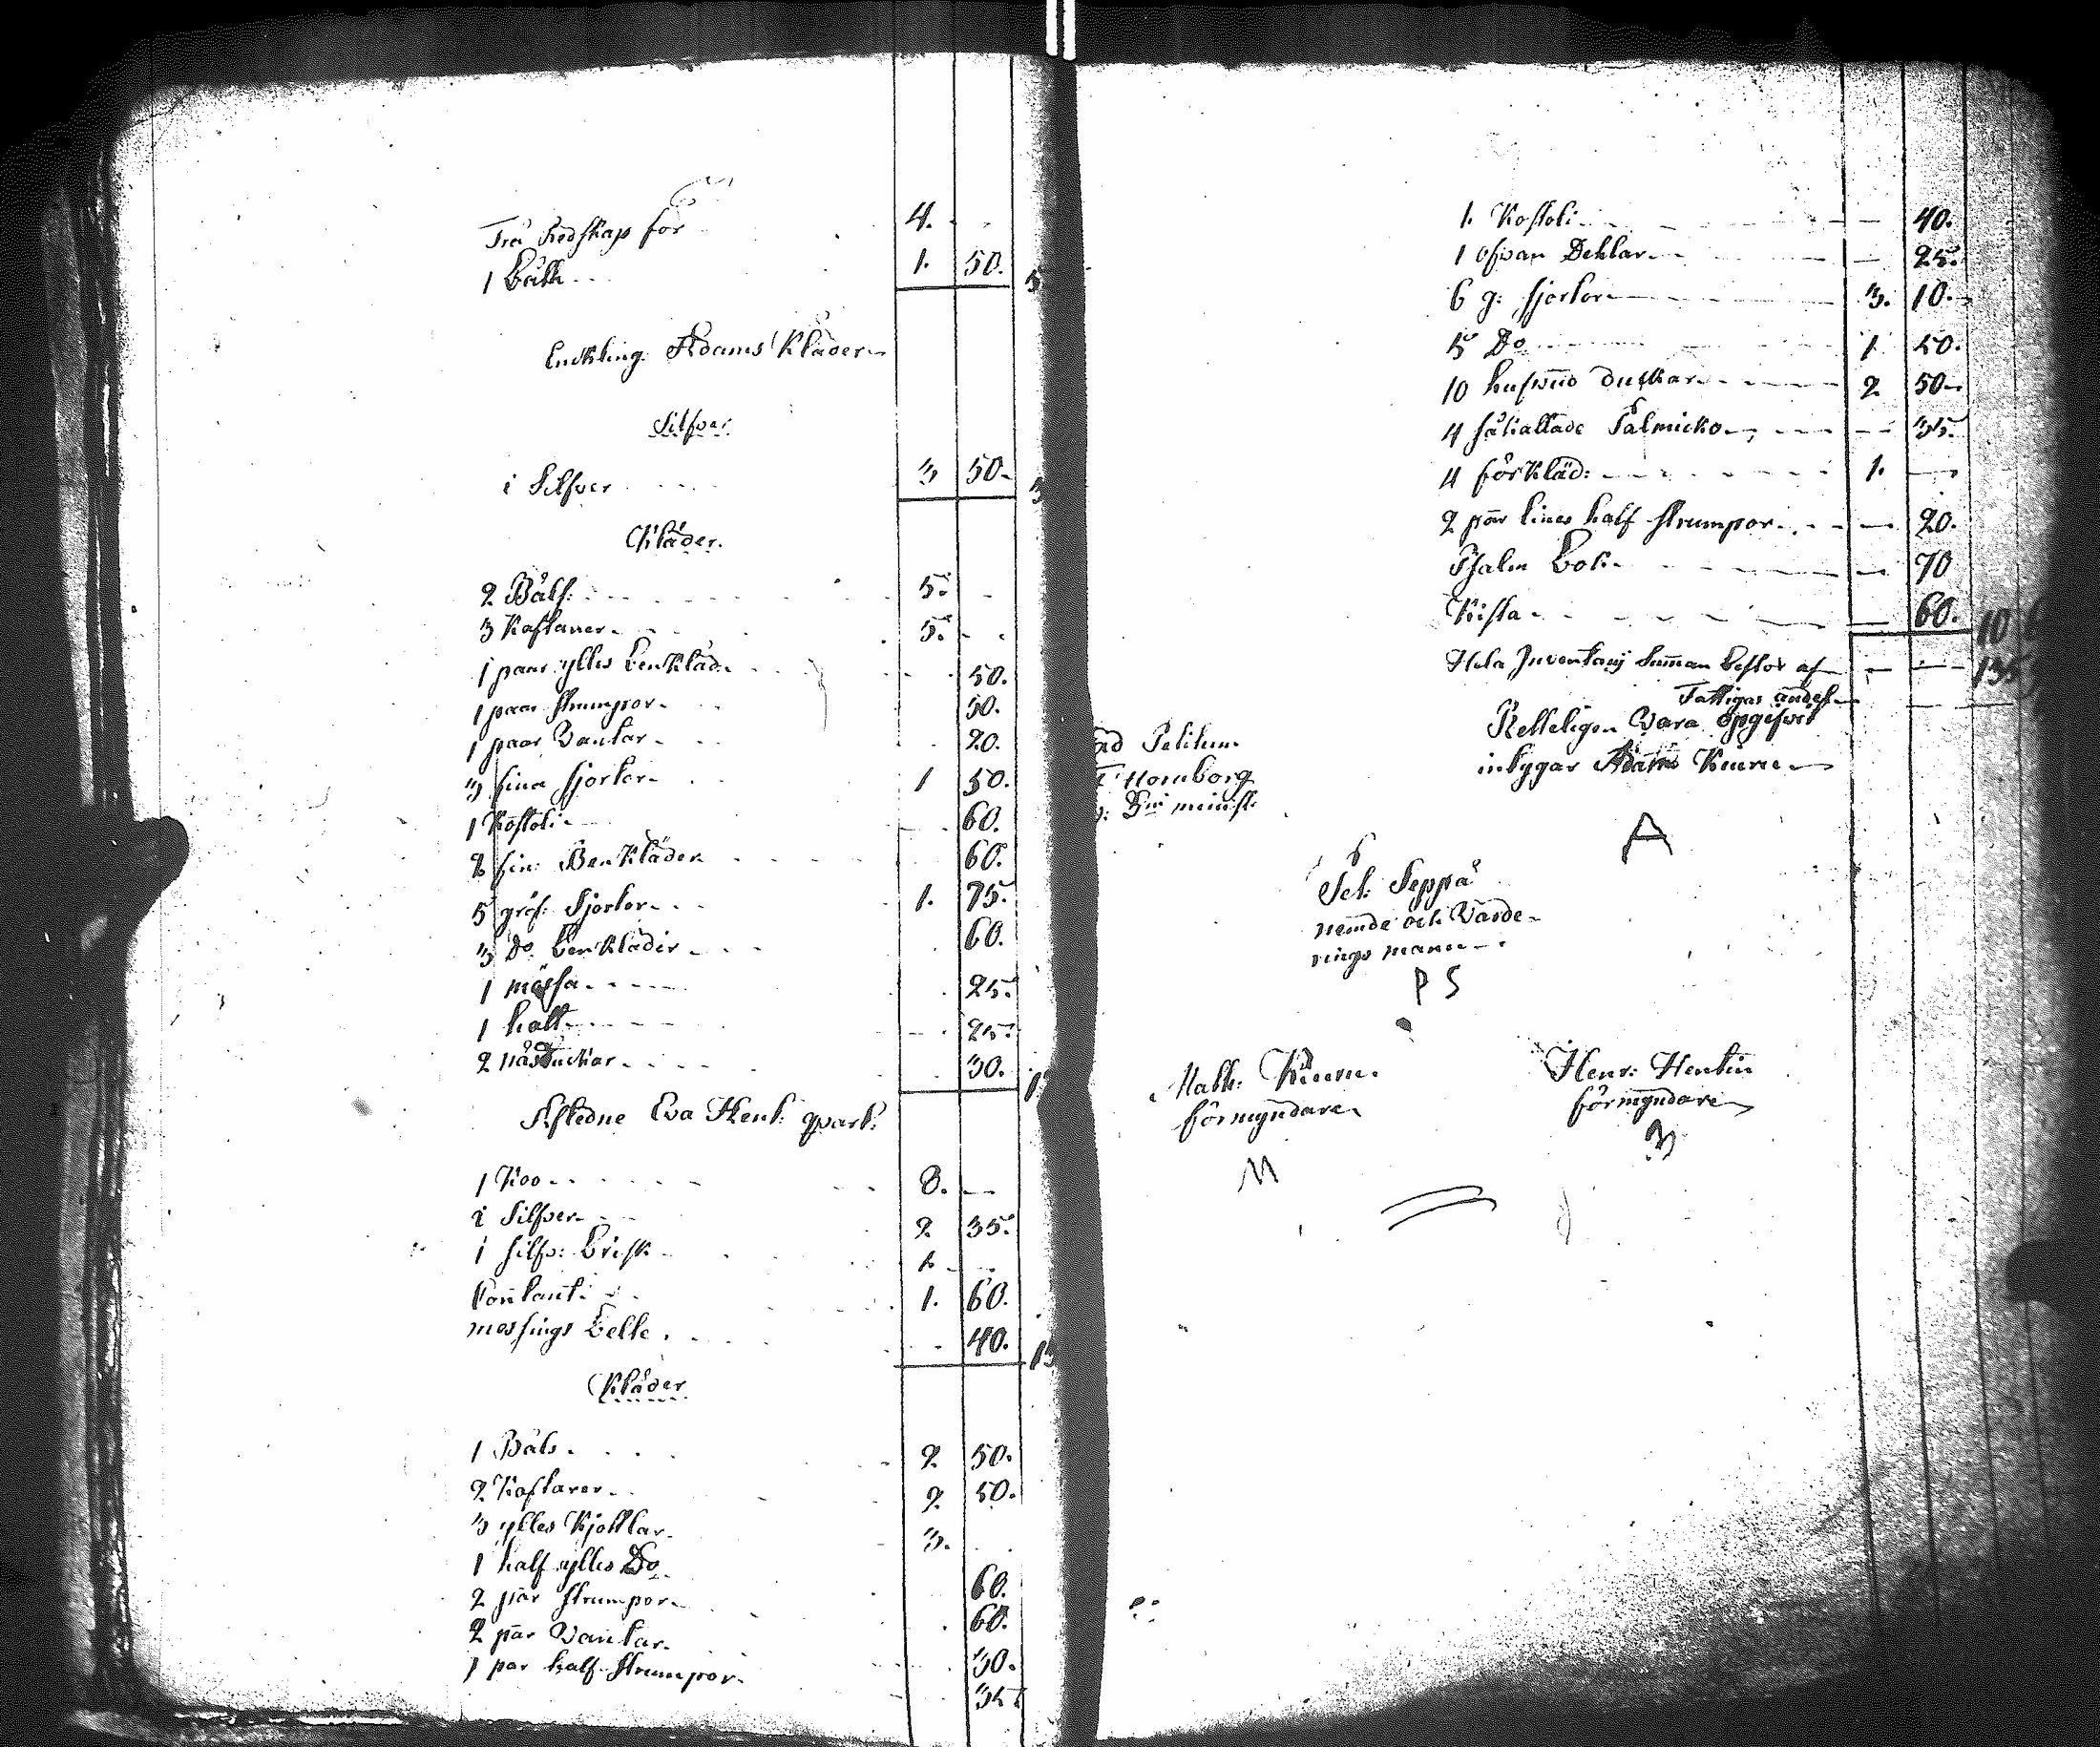 Trä Redskap för 4.
1 Båth 1. 50. 5
Enckling Adams Kläder
Silfver
i Silfver 3 50. 3
Kläder.
2 Päls: 5.
3 Kaftaner 5.
1 paar ylles benkläd. 50.
1 paar strumpor 30.
1 paar Vantar 20.
3 fina skjortor 1 50.
1 Kostoli 60.
2 fin: Benkläder 60.
5 gröf: skjortor 1. 75.
3 Do benkläder 60.
1 mössa 25.
1 hatt 25.
2 näsduckar 30.
Afledne Eva Henl: qvarl:
1 Koo 8.
i Silfver 2 35.
1 silfv: brisk
Contant: 1. 60.
messings belte 40. 13
Kläder
1 Päls 2 50.
2 Kaftaner 2 50.
3 ylles Kjohlar 3.
1 half ylles Do 60.
2 pär strumpor 60.
2 pär Vantar 30.
1 par half strumpor 35
1. Kostoli 40.
1 ofvan Dehlar 25.
6 g: skjortor 3. 10.
5 Do 1 50.
10 hufvud duckar 2 50
4 såkallade 35.
4 förkläd: 1.
2 par lines half strumpor 20.
Psalm Bok 70
Kista 60. 10
Hela Inventarij Summan bestor af 135
Fattigas andel
Retteligen Vara opgifvit
inbygar Adam Kinnu
A
ad Petitum
Hornborg
Sel: Seppä
nemde och Värde-
rings mann
P S
Math: Kinnu
förmyndare
M
Henr: Hentin
förmyndare
3